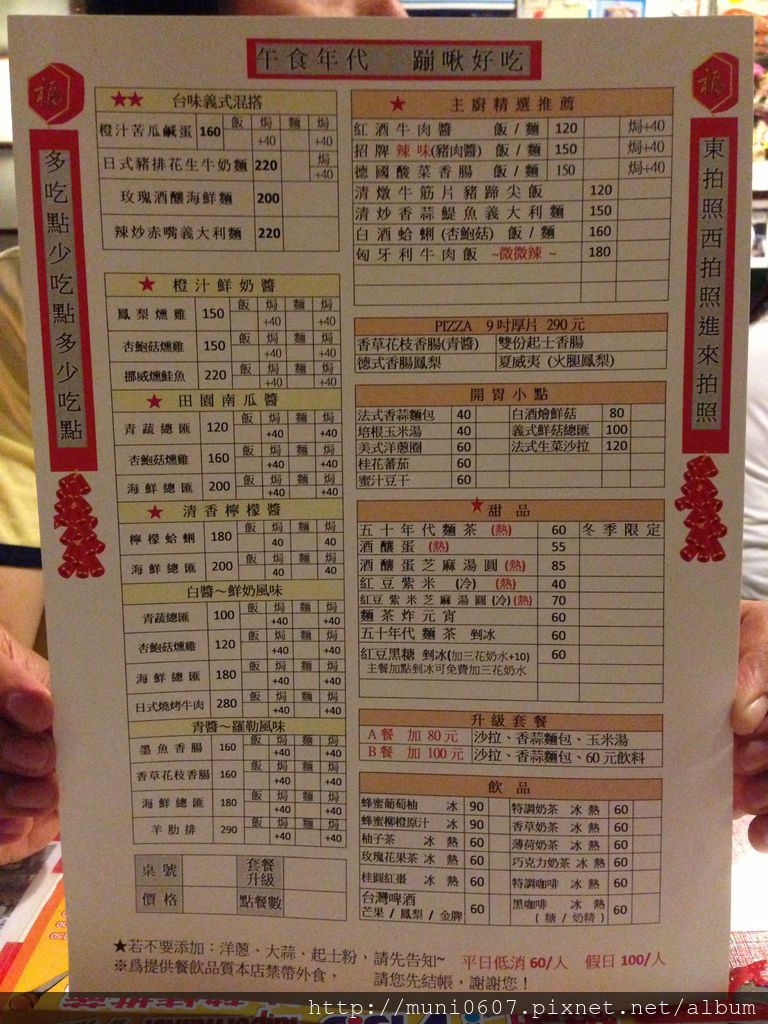 午食年代 蹦啾好吃
福
多吃點少吃點多少吃點
福
東拍照西拍照進來拍照
★★ 台味義式混搭
橙汁苦瓜鹹蛋 160 飯 焗+40 麵 焗+40
日式豬排花生牛奶麵 220 焗+40
玫瑰酒釀海鮮麵 200
辣炒赤嘴義大利麵 220
★ 橙汁鮮奶醬
鳳梨燻雞 150 飯 焗+40 麵 焗+40
杏鮑菇燻雞 150 飯 焗+40 麵 焗+40
挪威燻鮭魚 220 飯 焗+40 麵 焗+40
★ 田園南瓜醬
青蔬總匯 120 飯 焗+40 麵 焗+40
杏鮑菇燻雞 160 飯 焗+40 麵 焗+40
海鮮總匯 200 飯 焗+40 麵 焗+40
★ 清香檸檬醬
檸檬蛤蜊 180 飯 焗40 麵 焗40
海鮮總匯 200 飯 焗40 麵 焗40
白醬~鮮奶風味
青蔬總匯 100 飯 焗+40 麵 焗+40
杏鮑菇燻雞 120 飯 焗+40 麵 焗+40
海鮮總匯 180 飯 焗+40 麵 焗+40
日式燒烤牛肉 280 飯 焗+40 麵 焗+40
青醬~羅勒風味
墨魚香腸 160 飯 焗+40 麵 焗+40
香草花枝香腸 160 飯 焗+40 麵 焗+40
海鮮總匯 180 飯 焗+40 麵 焗+40
羊肋排 290 飯 焗+40 麵 焗+40
桌號 套餐升級
價格 點餐數
★ 主廚精選推薦
紅酒牛肉醬 飯/麵 120 焗+40
招牌辣味(豬肉醬) 飯/麵 150 焗+40
德國酸菜香腸 飯/麵 150 焗+40
清燉牛筋片豬蹄尖飯 120
清炒香蒜鯷魚義大利麵 150
白酒蛤蜊(杏鮑菇) 飯/麵 160
匈牙利牛肉飯 ~微微辣~ 180
PIZZA 9吋厚片 290元
香草花枝香腸(青醬) 雙份起士香腸
德式香腸鳳梨 夏威夷(火腿鳳梨)
開胃小點
法式香蒜麵包 40 白酒燴鮮菇 80
培根玉米湯 40 義式鮮菇總匯 100
美式洋蔥圈 60 法式生菜沙拉 120
桂花蕃茄 60
蜜汁豆干 60
★甜品
五十年代麵茶(熱) 60 冬季限定
酒釀蛋(熱) 55
酒釀蛋芝麻湯圓(熱) 85
紅豆紫米(冷)(熱) 40
紅豆紫米芝麻湯圓(冷)(熱) 70
麵茶炸元宵 60
五十年代麵茶 剉冰 60
紅豆黑糖 剉冰(加三花奶水+10) 60
主餐加點剉冰可免費加三花奶水
升級套餐
A餐 加80元 沙拉、香蒜麵包、玉米湯
B餐 加100元 沙拉、香蒜麵包、60元飲料
飲品
蜂蜜葡萄柚 冰 90 特調奶茶 冰 熱 60
蜂蜜柳橙原汁 冰 90 香草奶茶 冰 熱 60
柚子茶 冰 熱 60 薄荷奶茶 冰 熱 60
玫瑰花果茶 冰 熱 60 巧克力奶茶 冰 熱 60
桂圓紅棗 冰 熱 60 特調咖啡 冰 熱 60
台灣啤酒 芒果/鳳梨/金牌 60 黑咖啡 冰 熱 (糖/奶精) 60
★若不要添加：洋蔥、大蒜、起士粉，請先告知~ 平日低消60/人 假日100/人
※為提供餐飲品質本店禁帶外食， 請您先結帳，謝謝您！
http://muni0607.pixnet.net/album